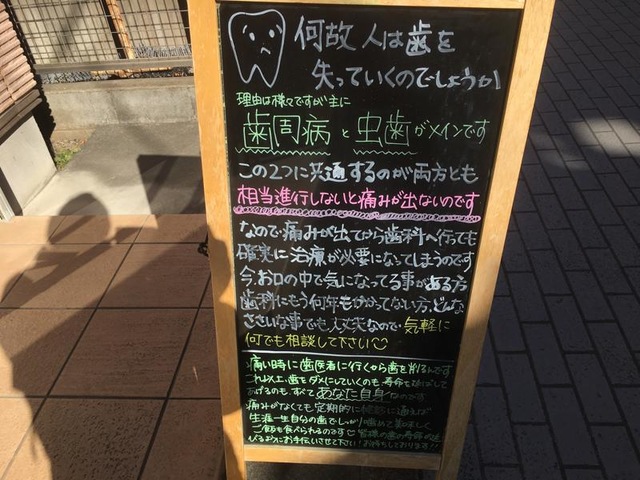 何故人は歯を
失っていくのでしょうか
理由は様々ですが主に
歯周病と虫歯がメインです
この2つに共通するのが両方とも
相当進行しないと痛みが出ないのです
なので痛みが出てから歯科へ行っても
確実に治療が必要になってしまうのです
今、お口の中で気になってる事がある方
歯科にもう何年もかかってない方、どんな
ささいな事でも大丈夫なので気軽に
何でも相談して下さい
痛い時に歯医者に行くから歯を削るんです
これ以上、歯をダメにしていくのも、寿命を
あげるのも、すべてあなた自身なのです
痛みがなくても定期的に検診に通えば
生涯一生自分の歯でしっかり噛めて美味しく
ご飯も食べられるのです 皆様の歯の寿命の
お手伝いさせて下さい!お待ちしております!!